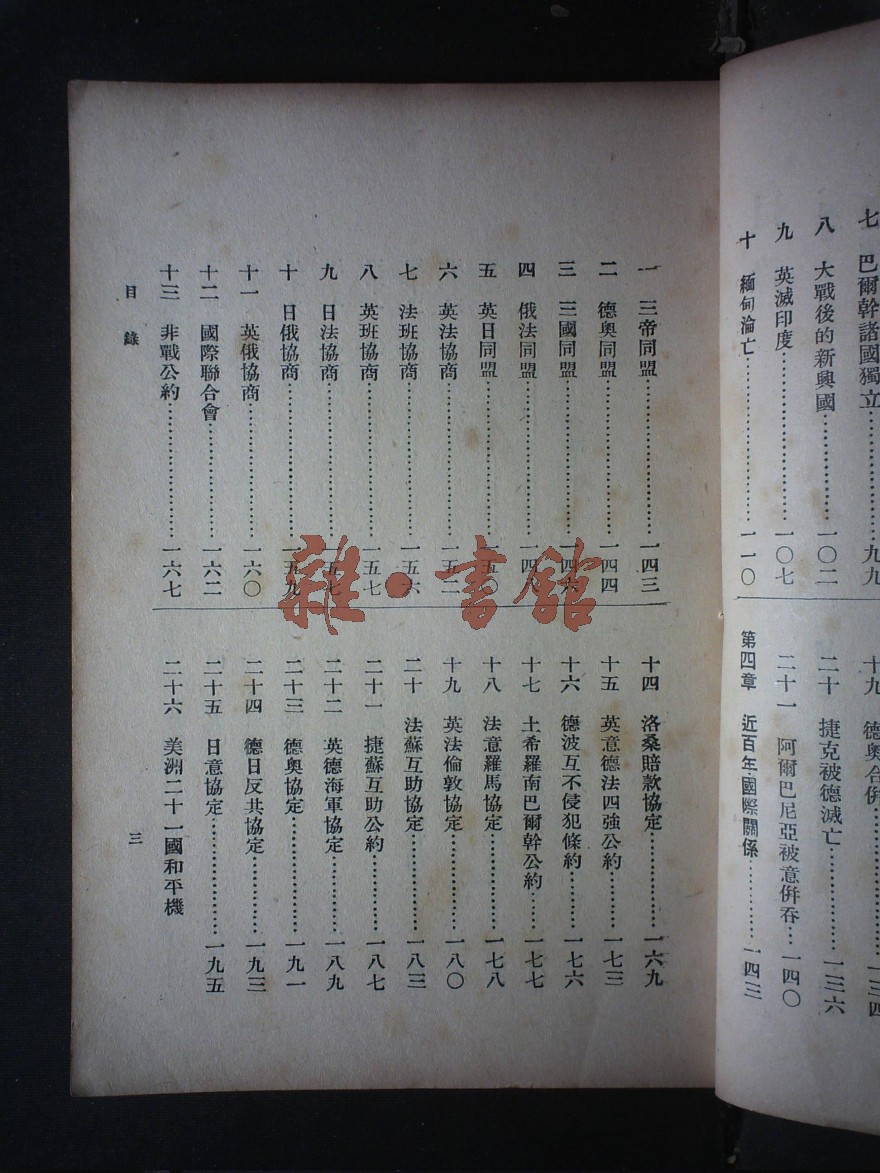 七　巴爾幹諸國獨立……九九
八　大戰後的新興國……一〇二
九　英滅印度……一〇七
十　緬甸淪亡……一一〇
十九　德奧合併……一三四
二十　捷克被德滅亡……一三六
二十一　阿爾巴尼亞被意併吞……一四〇
第四章　近百年國際關係……一四三
一　三帝同盟……一四三
二　德奧同盟……一四四
三　三國同盟……一四六
四　俄法同盟……一四九
五　英日同盟……一五〇
六　英法協商……一五二
七　法班協商……一五六
八　英班協商……一五七
九　日法協商……一五七
十　日俄協商……一五九
十一　英俄協商……一六〇
十二　國際聯合會……一六二
十三　非戰公約……一六七
十四　洛桑賠款協定……一六九
十五　英意德法四強公約……一七三
十六　德波互不侵犯條約……一七六
十七　土希羅南巴爾幹公約……一七七
十八　法意羅馬協定……一七八
十九　英法倫敦協定……一八〇
二十　法蘇互助協定……一八三
二十一　捷蘇互助公約……一八七
二十二　英德海軍協定……一八九
二十三　德奧協定……一九一
二十四　德日反共協定……一九三
二十五　日意協定……一九五
二十六　美洲二十一國和平機
目錄
三
雜·書館